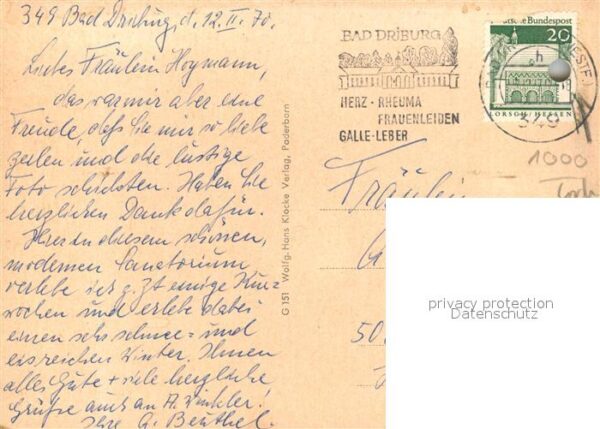 349 Bad Driburg, d. 12.II.70.
Liebes Fräulein Hoymann,
das war mir aber eine
Freude, daß Sie mir so liebe
Zeilen und die lustige
Foto schickten. Haben Sie
herzlichen Dank dafür.
Hier in diesem schönen,
modernen Sanatorium
verlebe ich z.Zt einige Kur=
wochen und erlebe dabei
einen sehr schnee= und
eisreichen Winter. Ihnen
alles Gute + viele herzliche
Grüße auch an A. Winkler!
Ihre G. Beuthel.
G 151 Wolfg. Hans Klocke Verlag, Paderborn
BAD DRIBURG
HERZ · RHEUMA
FRAUENLEIDEN
GALLE-LEBER
Deutsche Bundespost
20
LORSCH/HESSEN
h
349
1000
Fräulein
50
privacy protection
Datenschutz